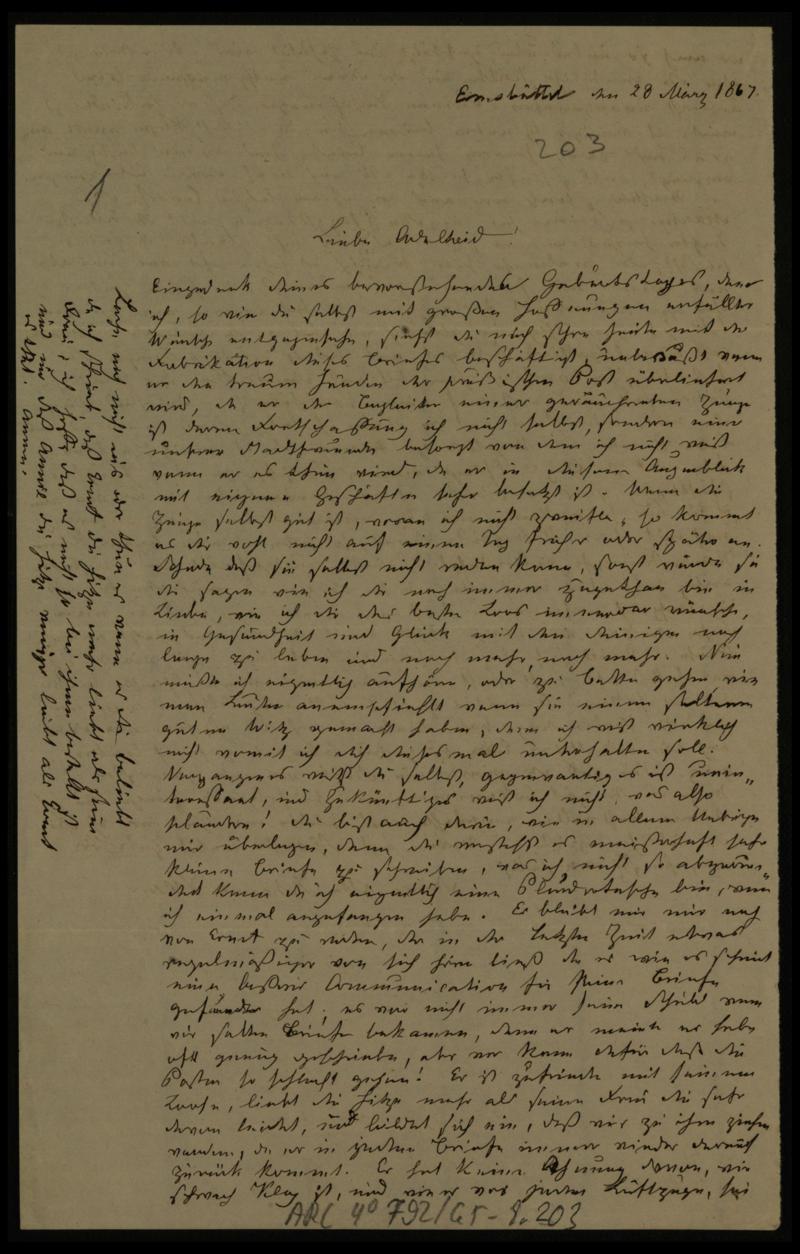 Eimsbüttel den 28 März 1867.
203
1
Liebe Adelheid!
Eingedenk deines bevorstehenden Geburtstages, dem
ich, so wie du selbst mit großen Hoffnungen erfüllter
Wünsche entgegensehe, siehst du mich schon heute mit der
Fabrikation dieses Briefes beschäftigt, unbewußt wann
er den treuen Händen der preußischen Post überliefert
wird, da er der Begleiter einer geräucherten Zunge
ist deren Fortschaffung ich nicht selbst, sondern einer
unserer Stadtfreunde besorgt von dem ich nicht weiß
wann er es thun wird, da er in diesem Augenblick
mit eigenen Geschäften sehr besetzt ist. Wenn die
Zunge selbst gut ist, woran ich nicht zweifle, so kommt
es dir wohl nicht auf einen Tag früher oder später an.
Schade daß sie selbst nicht reden kann, sonst würde sie
dir sagen wie ich dir noch immer zugethan bin in
Liebe, wie ich dir das beste Loos immerdar wünsche,
in Gesundheit und Glück mit den deinigen noch
lange zu leben und noch mehr, noch mehr. Nun
müßte ich eigentlich aufhören, oder zu Bette gehen wie
man Leuten anempfiehlt wenn sie einen seltenen
guten Witz gemacht haben, denn ich weiß wirklich
nicht womit ich dich diesesmal unterhalten soll.
Vergangenes weißt du selbst, gegenwärtiges ist unin„
teressant, und Zukünftiges weiß ich nicht, was also
plaudern! du bist auch darin, wie in allem Uebrigen
mir überlegen, denn du verstehst es meisterhaft sehr
kleine Briefe zu schreiben, was ich nicht so
kann da ich eigentlich eine Plaudertasche bin, wenn
ich einmal angefangen habe. Es bleibt mir nur noch
von Ernst zu reden, der in der letzten Zeit etwas
regelmäßiger von sich hören ließ da er wie es scheint
eine bessere Communication für seine Briefe
gefunden hat; es war nicht immer seine Schuld wenn
wir selten Briefe bekamen, denn er meinte er habe
oft genug geschrieben, aber wer kann dafür daß die
Posten so schlecht gehen! Er ist zufrieden mit seinem
Loose, liebt die Hitze mehr als seine Frau die sehr
davon leidet, und bildet sich ein, daß wir zu ihm ziehen
werden, da er in jedem Briefe immer wieder darauf
zurück kommt. Er hat keine Ahnung davon, wie
schwach Klag ist, und wie er vor jedem Luftzuge, sei
Lache mich nicht aus oder thue es wenn es dir beliebt
da ich schrieb, daß Ernst die Hitze mehr liebt als seine
Frau; ich hoffe daß es nicht so bei ihnen bestellt ist
und nur daß Amalie die Hitze weniger liebt als Ernst
ARC 4° 792/G5-8.203